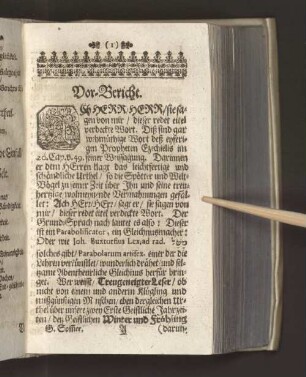 (1)
Vor-Bericht.
ACh HERR HERR / sie sa-
gen von mir / dieser redet eitel
verdeckte Wort. Diß sind gar
wehmütige Wort deß eyfrig-
en Propheten Ezechielis in
20. Cap. v. 49. seiner Weissagung. Darinnen
er dem HErrn klagt das leichtfertige und
schändliche Urthel / so die Spötter und Welt-
Vögel zu jener Zeit über Ihn und seine treu-
hertzige wolmeynende Vermahnungen gefäl-
let: Ach HErr HErr / sagt er / sie sagen von
mir / dieser redet eitel verdeckte Wort. Der
Grund-Sprach nach lautet es also: Dieser
ist ein Parabolisicator, ein Gleichnusmacher:
Oder wie Joh. Buxtorfius Lex. ad rad. משל
solches gibt / Parabolarum artifex. einer der die
Lehren verkünstlet / wunderlich drähet und selt-
zame Abentheurliche Gleichnus herfür brin-
get. Wer weißt / Treugeneigter Leser / ob
nicht von einem und anderm Klügling und
müßgünstigen Menschen eben dergleichen Ur-
thel über unsere zween Erste Geistliche Jahrzei-
ten / den Geistlichen Winter und Frühling
G. Som̃er. A (darun-